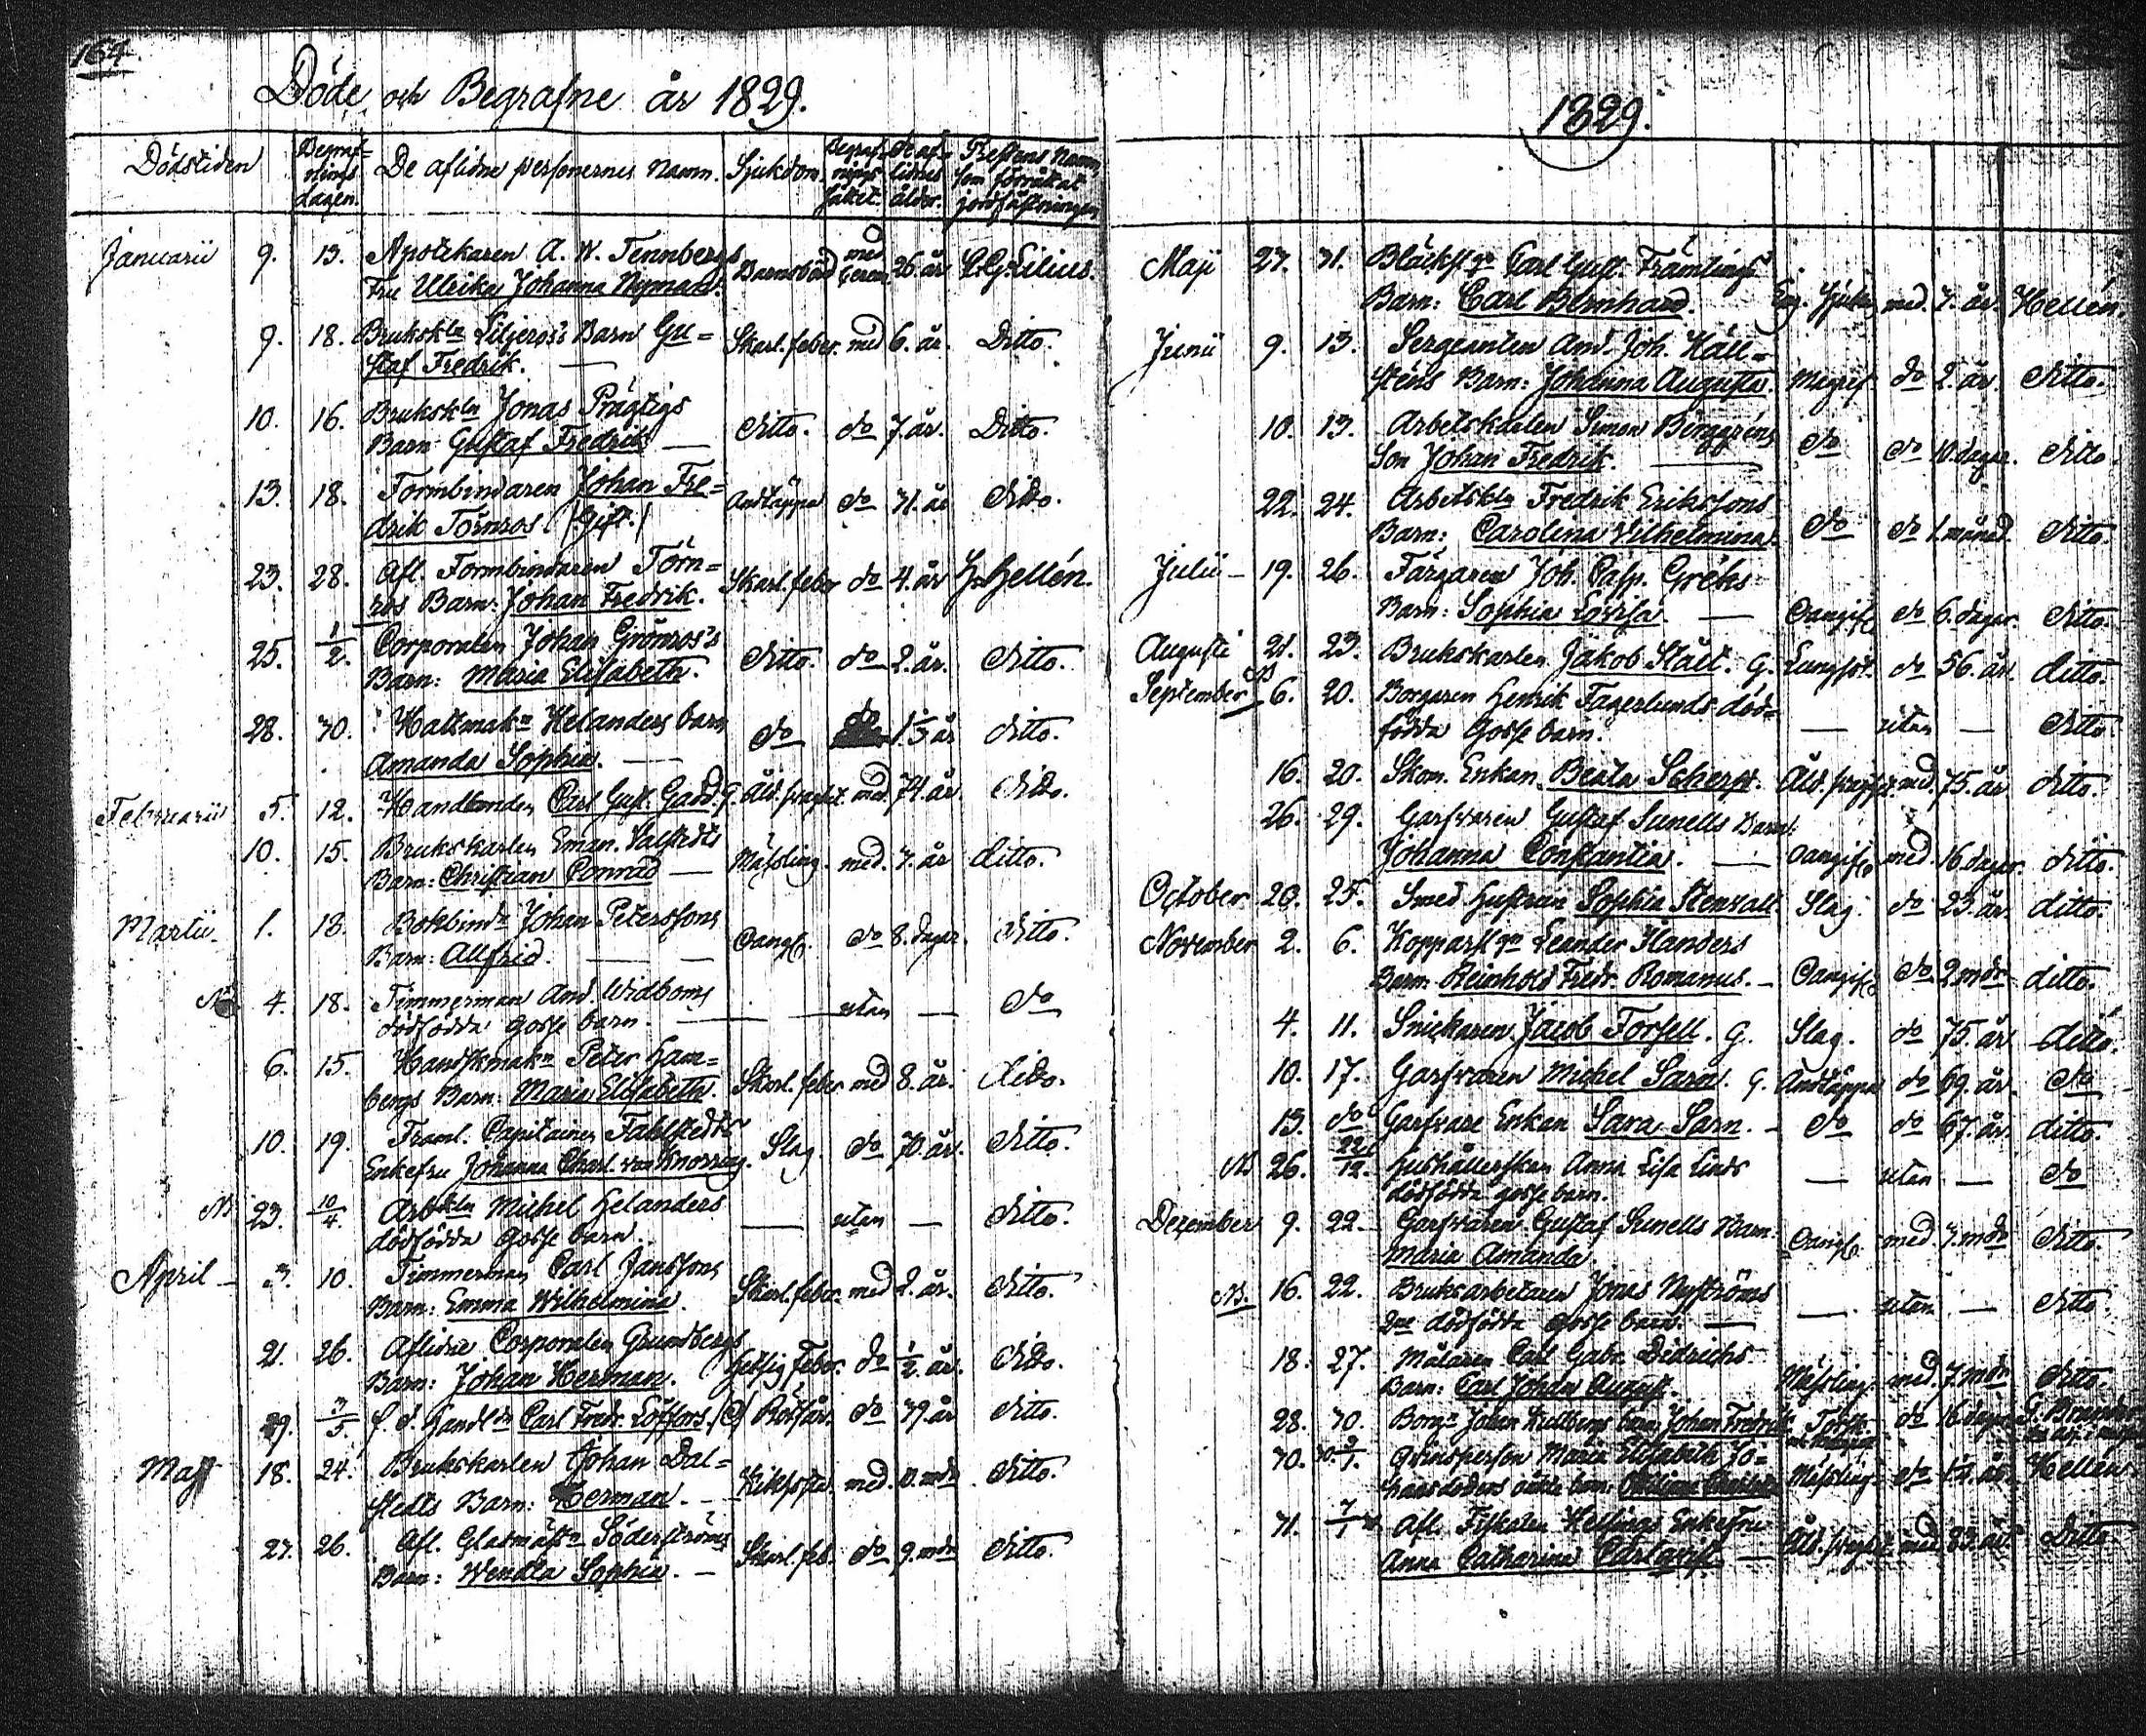 164.
Döde och Begrafne år 1829.
Dödstiden
Begraf-
nings
dagen.
De aflidne personernes Namn.
Sjukdom.
Begraf-
nings
sättet.
De af-
lidnes
ålder.
Prestens Namn,
som förrättat
jordfästningen
Januarii 9. 13. Apothekaren A. W. Tennbergs
Fru Ulrika Johanna Nyman. Barnsbörd med Cerem. 26. år C. G. Lilius.
9. 18. Brukskln Liljeros's Barn Gu-
staf Fredrik. — Skarl. feber. med 6. år. Ditto.
10. 16. Brukskln Jonas Prägtigs
Barn: Gustaf Fredrik — Ditto. do 7. år. Ditto.
13. 18. Formbindaren Johan Fre-
drik Törnros. (Gift.) Andtäppa do 31. år Ditto.
23. 28. Afl. Formbindaren Törn-
ros Barn: Johan Fredrik. Skarl. feber do 4. år H. Hellén.
25. 1/2. Corporalen Johan Grönros's
Barn: Maria Elisabeth. Ditto. do 2. år. Ditto.
28. 30. Hattmakn Helanders barn
Amanda Sophia. — do do år Ditto.
Februarii 5. 12. Handlanden Carl Gust. Gadd. G. Åld. svaghet. med. 74 år. Ditto.
10. 15. Brukskarlen Eman. Salstedts
Barn: Christian Conrad — Mässling. med. 3. år ditto.
Martii. 1. 18. Bokbindn Johan Peterssons
Barn: Allfrid. — Oangif. do 8. dagar. Ditto.
NB 4. 18. Timmerman And. Widboms
dödfödda gosse barn. — utan — do
6. 15. Handskmakn Peter Ham-
bergs Barn: Maria Elisabeth. Skarl. feber med 8. år. Ditto.
10. 19. Framl. Capitainen Fahlstedts
Enkefru Johanna Charl. von Knorring. Slag. do 70. år. Ditto.
NB 23. 10/4. Arbkln Michel Helanders
dödfödda Gosse barn. — utan — Ditto.
April — 3. 10. Timmerman Carl Janssons
Barn: Emma Wilhelmina. Skarl. feber. med 2. år. Ditto.
21. 26. Aflidne Corporalen Grundbergs
Barn: Johan Herman. Hetsig Feber. do 1/2. år. Ditto.
29. 3/5 f. d. Handln Carl Fredr. Löffors. Rötsår. do 39. år Ditto.
Maj 18. 24. Brukskarlen Johan Dal-
stedts Barn: Herman. — Kikhosta. med. 10. mdr Ditto.
23. 26. Afl. Glasmästn Söderströms
Barn: Wendla Sophia. — Skarl. feb. do 9. mdr Ditto.
1829.
Maji 27. 31. Bläckslgn Carl Gust. Främlings
Barn: Carl Bernhard. Eng. Sjukan med. 3. år. Hellén.
Junii 9. 13. Sergeanten And. Joh. Häll-
sténs Barn: Johanna Augusta. Magref do 2. år. Ditto.
10. 13. Arbetskarlen Simon Berggréns
Son Johan Fredrik. — do do 10. dagar. Ditto
22. 24. Arbetskln Fredrik Erikssons
Barn: Carolina Vilhelmina. do do 1. månad. Ditto.
Julii — 19. 26. Färgaren Joh. Casp. Gréhs
Barn: Sophia Lovisa. — Oangifv do 6. dagar. Ditto.
Augusti 21. 23. Brukskarlen Jakob Stålt. G. Lungsot. do 56. år. ditto.
September NB 6. 20. Borgaren Henrik Fagerlunds död-
födda Gosse barn. — utan — Ditto
16. 20. Skom. Enkan Beata Scherft. Åld. svaghet med. 75. år Ditto.
26. 29. Garfvaren Gustaf Sunells Barn
Johanna Constantia. — oangifv. med. 16 dagar. ditto.
October 20. 25. Smed. Hustrun Sophia Stensall Slag. do 23. år. ditto.
November 2. 6. Kopparslgn Leander Ilanders
Barn: Reinhold Fredr. Romanus. — Oangifv do 2 mdr ditto.
4. 11. Snickaren Jacob Forsell. G. Slag. do 75. år ditto.
10. 17. Garfvaren Michel Sarn. G. Andtäppa do 69. år. do
13. do Garfvare Enkan Sara Sarn. — do do 67. år. ditto.
NB 26. 22/12. Hushållerskan Anna Lisa Linds
dödfödda gosse barn. — utan — do
Dezember 9. 22. Garfvaren Gustaf Sunells Barn:
Maria Amanda Oangif. med. 3. mdr Ditto.
NB. 16. 22. Bruksarbetaren Jonas Nyströms
2ne dödfödda gosse barn. — — utan — Ditto.
18. 27. Målaren Carl Gabr. Didrichs
Barn: Carl Johan August. Mässling. med. 7. mdr Ditto.
28. 30. Borgn Johan barn Johan Fredrik Torsk do 16 dagar
30. Qvinsperson Maria Elisabeth Jo-
hansdoters oäkta barn: Mässling do år. Hellén
31. 7/1 Afl. Fiskalen Hellings Enkefru
Anna Catharina Carlqvist — Åld. svaghet med 83. år. Ditto